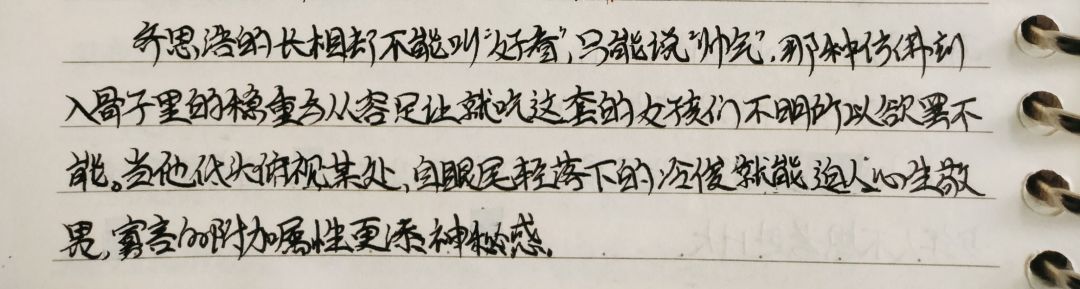 齐思浩的长相却不能叫“好看”，只能说“帅气”，那种仿佛刻
入骨子里的稳重与从容足让就吃这套的女孩们不明所以欲罢不
能。当他低头俯视某处，自眼尾轻落下的冷俊就能迫人心生敬
畏，寡言的附加属性更添神秘感。